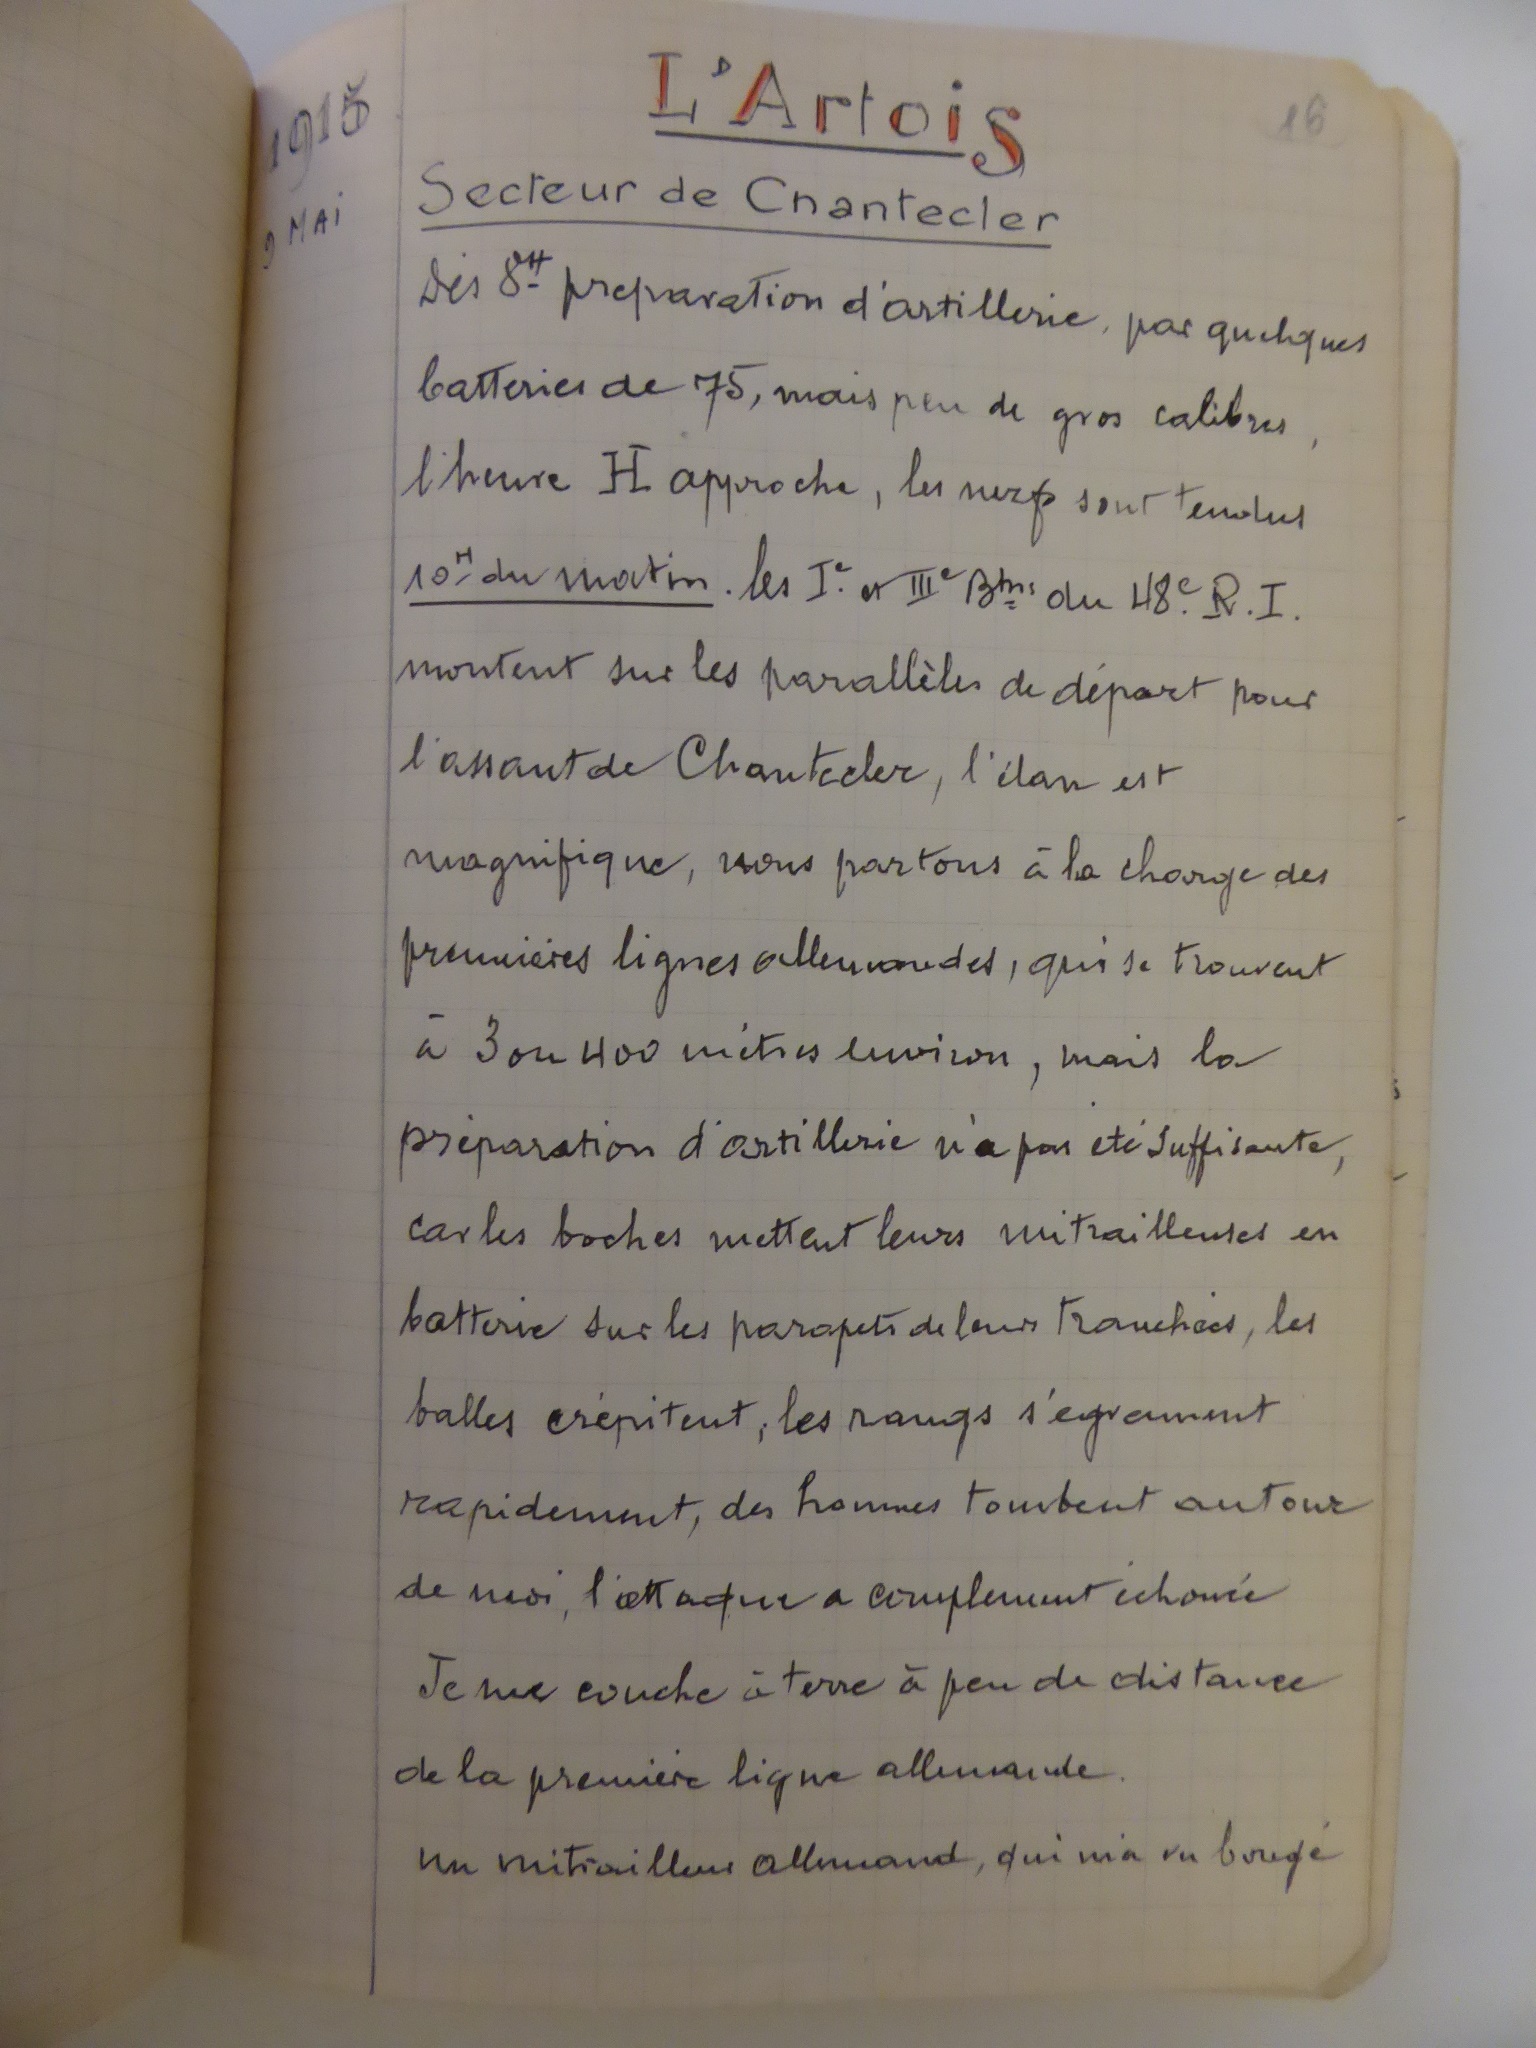 1915
9 MAI
16
L'Artois
Secteur de Chantecler
Dès 8H préparation d'artillerie, par quelques
batteries de 75, mais peu de gros calibres,
l'heure H approche, les nerfs sont tendus
10H du matin. les Ie et IIIe Btns du 48e R.I.
montent sur les parallèles de départ pour
l'assaut de Chantecler, l'élan est
magnifique, nous partons à la charge des
premières lignes allemandes, qui se trouvent
à 3 ou 400 mètres environ, mais la
préparation d'artillerie n'a pas été suffisante,
car les boches mettent leurs mitrailleuses en
batterie sur les parapets de leurs tranchées, les
balles crépitent, les rangs s'egrennent
rapidement, des hommes tombent autour
de moi, l'attaque a complement échouée
Je me couche à terre à peu de distance
de la première ligne allemande.
un mitrailleur allemand, qui m'a vu bougé